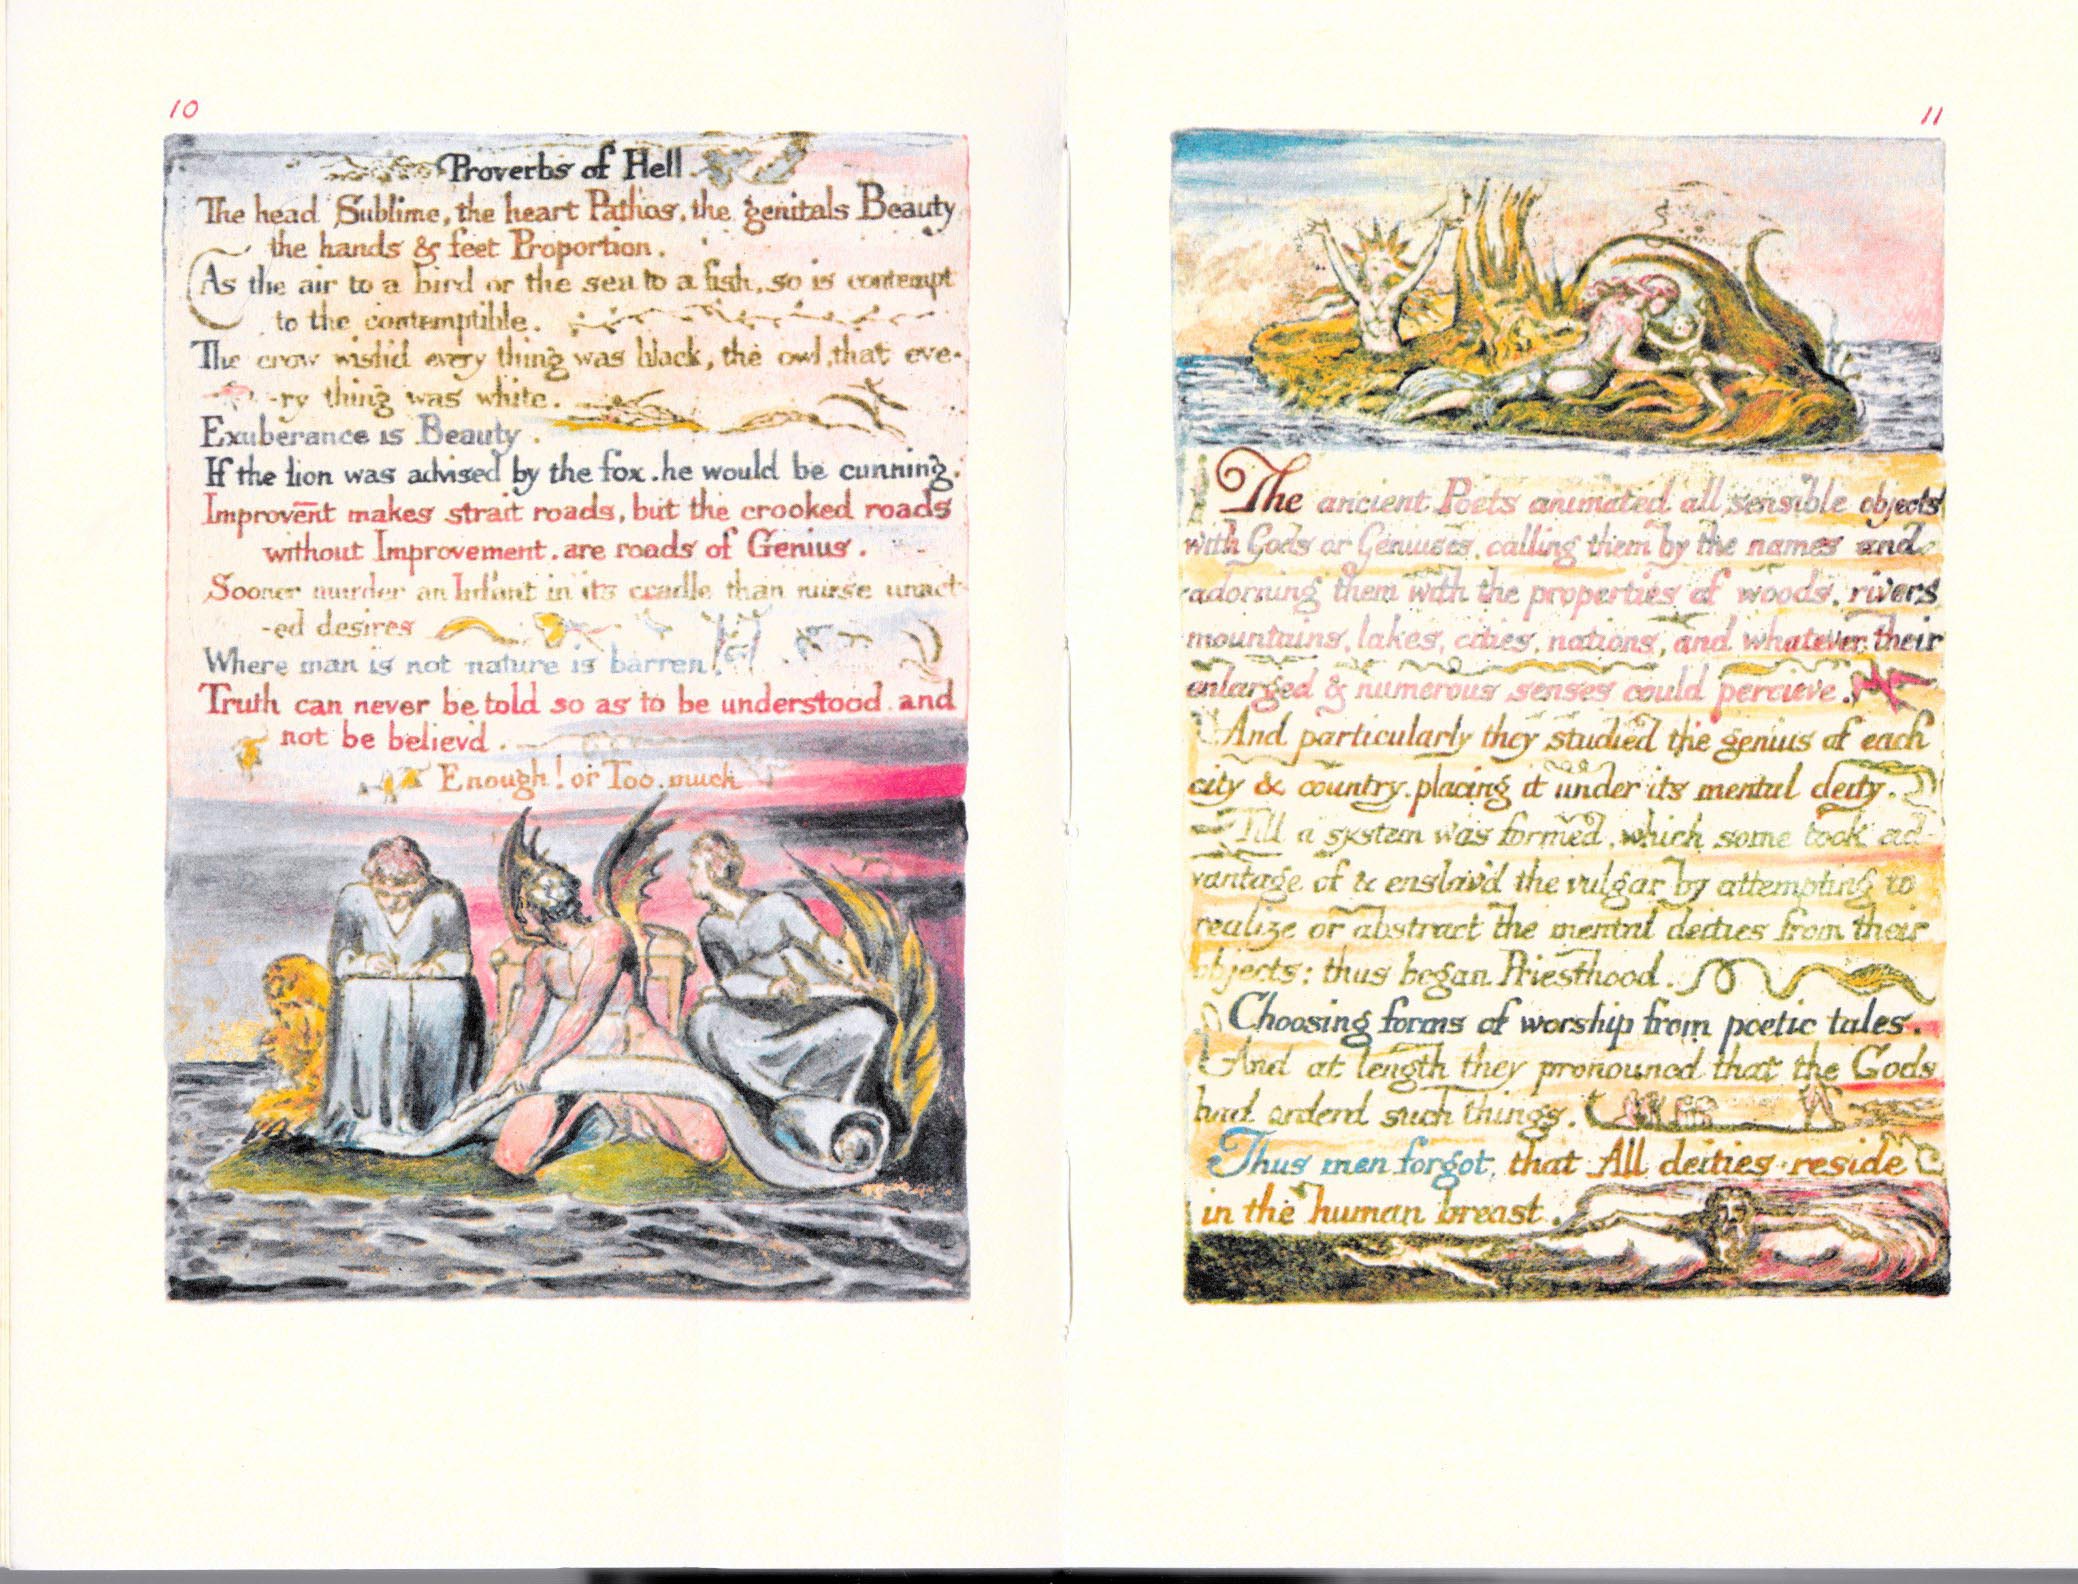 10
Proverbs of Hell
The head Sublime, the heart Pathos, the genitals Beauty
the hands & feet Proportion.
As the air to a bird or the sea to a fish, so is contempt
to the contemptible.
The crow wish'd every thing was black, the owl, that eve-
-ry thing was white.
Exuberance is Beauty.
If the lion was advised by the fox. he would be cunning.
Improvent makes strait roads, but the crooked roads
without Improvement. are roads of Genius.
Sooner murder an Infant in its cradle than nurse unact-
-ed desires
Where man is not nature is barren.
Truth can never be told so as to be understood. and
not be believ'd.
Enough! or Too much
11
The ancient Poets animated all sensible objects
with Gods or Geniuses, calling them by the names and
adorning them with the properties of woods, rivers
mountains, lakes, cities, nations, and whatever their
enlarged & numerous senses could percieve.
And particularly they studied the genius of each
city & country. placing it under its mental deity.
Till a system was formed, which some took ad-
vantage of & enslav'd the vulgar by attempting to
realize or abstract the mental deities from their
objects: thus began Priesthood.
Choosing forms of worship from poetic tales.
And at length they pronounced that the Gods
had orderd such things.
Thus men forgot that All deities reside
in the human breast.